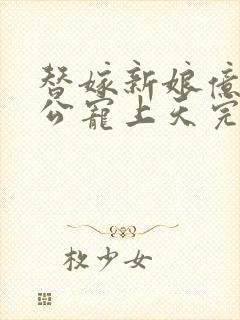 替嫁新娘億
公寵上天完
枚少女